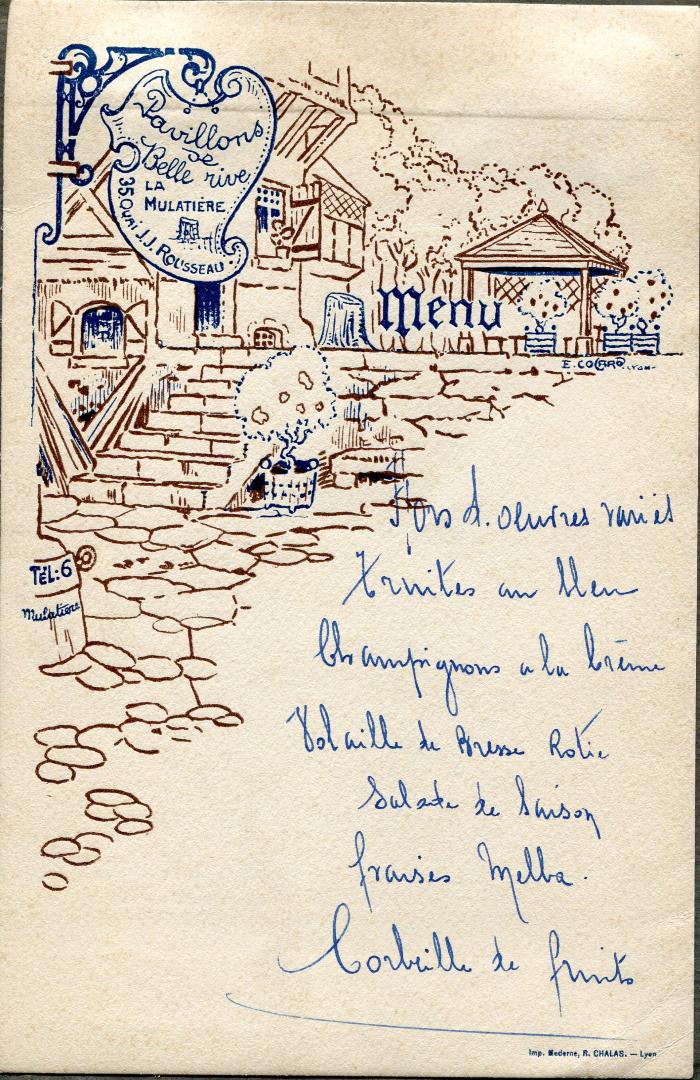 Pavillons
de
Belle rive
LA
MULATIÈRE
35 QUAI J.J. ROUSSEAU
Menu
E. COGARD LYON
Hors d'oeuvres variés
TÉL: 6
Mulatière
Truites au bleu
Champignons a la Crème
Volaille de Bresse Rotie
Salade de Saison
fraises Melba.
Corbeille de fruits
Imp. Moderne, R. CHALAS. — Lyon